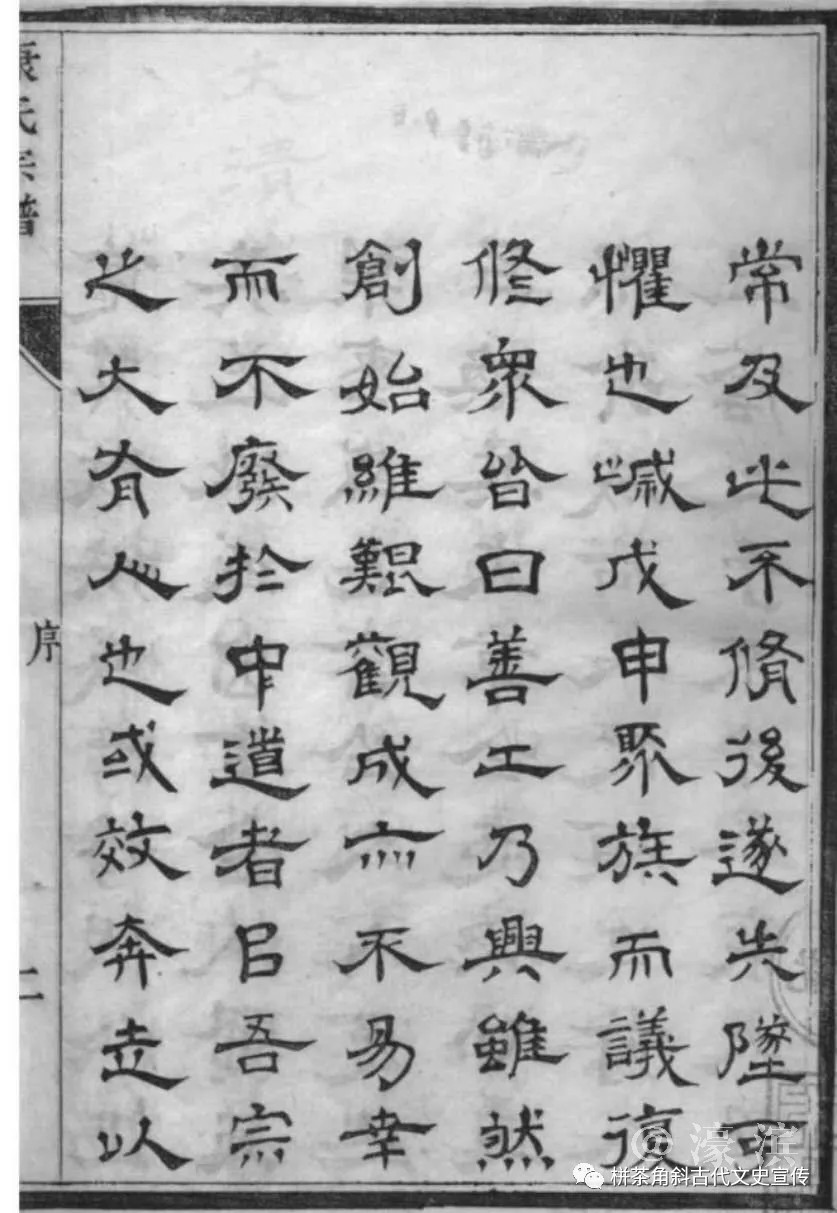 常及此不脩後遂失墜可
懼也歲戊申聚族而議復
修眾皆曰善工乃興雖然
創始維艱觀成亦不易幸
而不廢於中道者㠯吾宗
之大有人也或效奔走以
康氏宗譜
序
二
@濠滨
栟茶角斜古代文史宣传